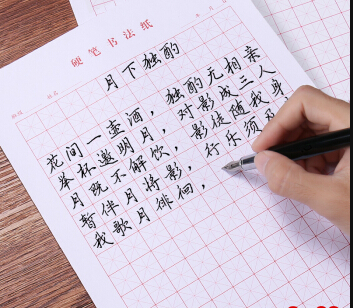 硬笔书法纸
月下独酌
花间一壶酒，独酌无相亲
举杯邀明月，对影成三人
月既不解饮，影徒随我身
暂伴月将影，行乐须及
我歌月徘徊，